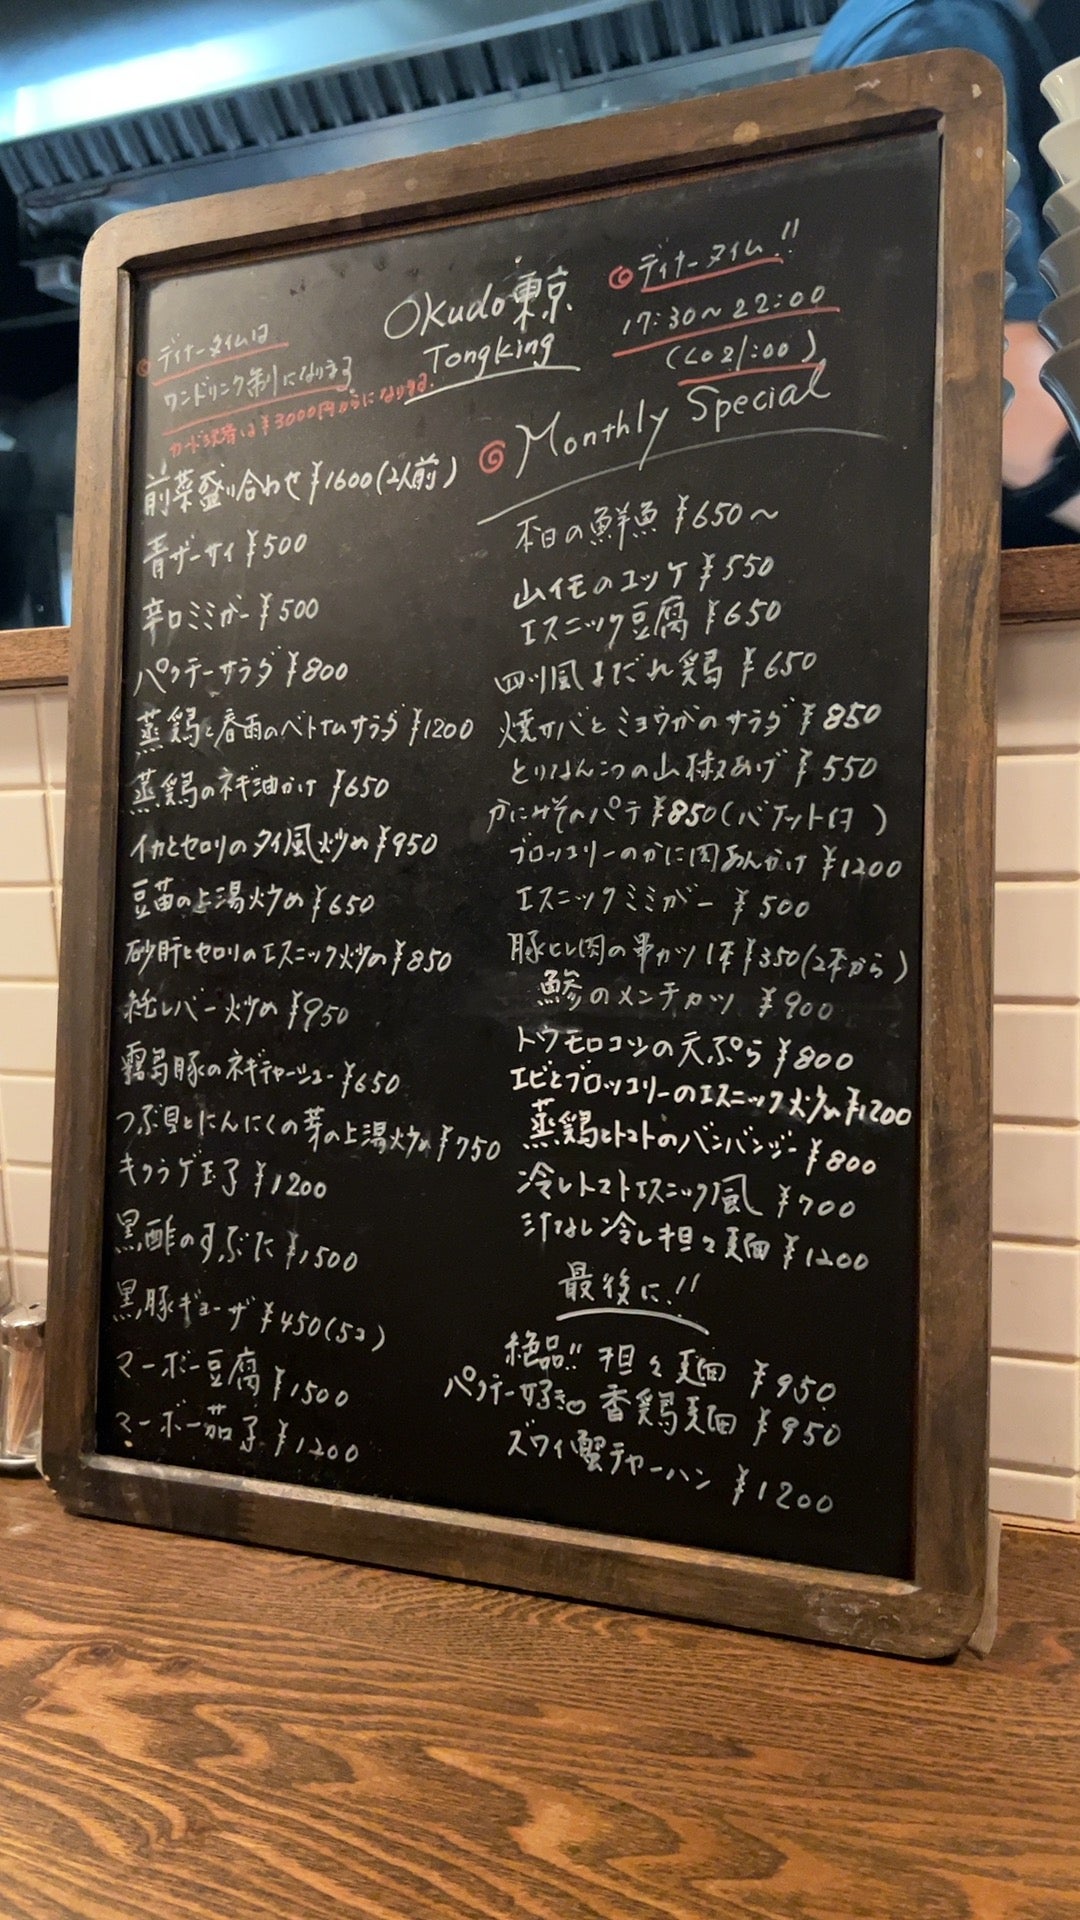 Okudo東京
Tongking
ディナータイム!!
17:30〜22:00
(LO 21:00)
ディナータイムは
ワンドリンク制になります
カード決済は¥3000円からになります。
前菜盛り合わせ ¥1600(2人前)
青ザーサイ ¥500
辛口ミミガー ¥500
パクチーサラダ ¥800
蒸鶏と春雨のベトナムサラダ ¥1200
蒸鶏のネギ油かけ ¥650
イカとセロリのタイ風炒め ¥950
豆苗の上湯炒め ¥650
砂肝とセロリのエスニック炒め ¥850
レバー炒め ¥950
霧島豚のネギチャーシュー ¥650
つぶ貝とにんにくの芽の上湯炒め ¥750
キクラゲ玉子 ¥1200
黒酢のすぶた ¥1500
黒豚ギョーザ ¥450(5コ)
マーボー豆腐 ¥1500
マーボー茄子 ¥1200
Monthly Special
本日の鮮魚 ¥650〜
山イモのユッケ ¥550
エスニック豆腐 ¥650
四川風よだれ鶏 ¥650
焼サバとミョウガのサラダ ¥850
とりなんこつの山椒あげ ¥550
かにみそのパテ ¥850(バケット付)
ブロッコリーのかに肉あんかけ ¥1200
エスニックミミガー ¥500
豚ヒレ肉の串カツ 1本 ¥350(2本から)
鯵のメンチカツ ¥900
トウモロコシの天ぷら ¥800
エビとブロッコリーのエスニック炒め ¥1200
蒸鶏とトマトのバンバンジー ¥800
冷しトマトエスニック風 ¥700
汁なし冷し担々麺 ¥1200
最後に!!
絶品!! 担々麺 ¥950
パクチー好き 香鶏麺 ¥950
ズワイ蟹チャーハン ¥1200